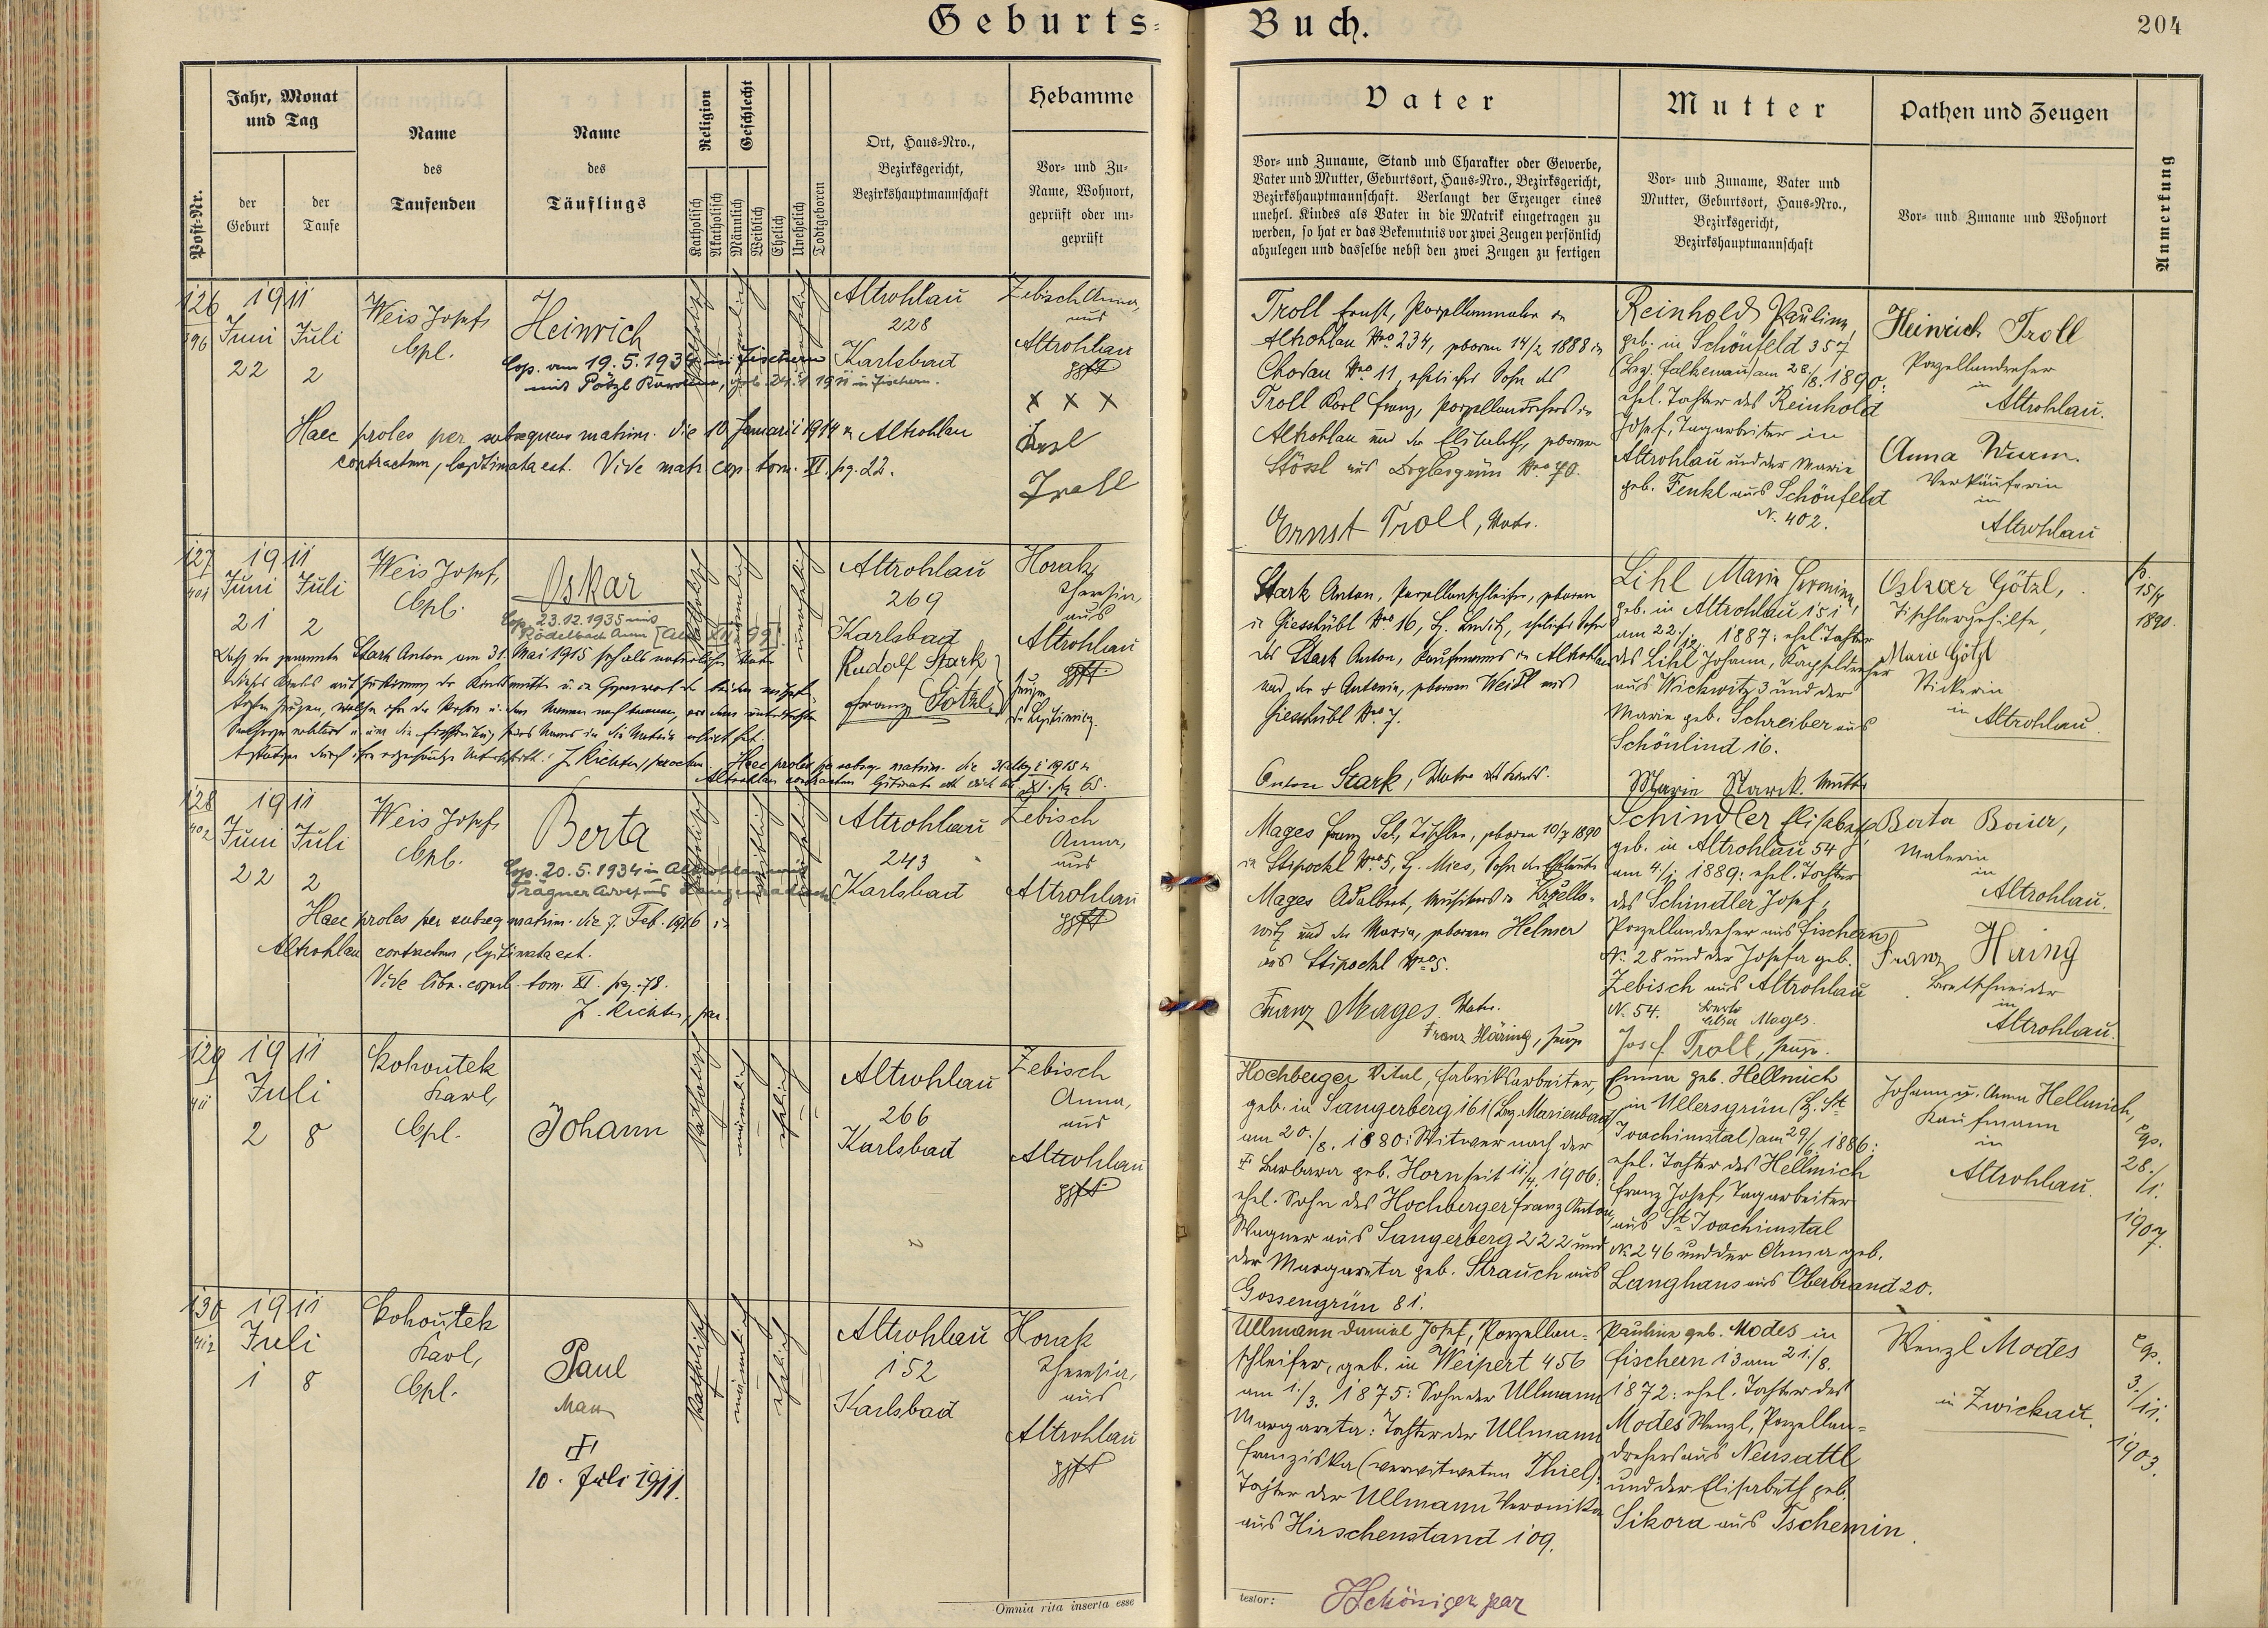 Geburts-Buch.
204
Jahr, Monat und Tag
der Geburt
der Taufe
Post-Nr.
Name des Taufenden
Name des Täuflings
Religion
Katholisch
Akatholisch
Geschlecht
Männlich
Weiblich
Ehelich
Unehelich
Todtgeboren
Ort, Haus-Nro.,
Bezirksgericht,
Bezirkshauptmannschaft
Hebamme
Vor- und Zu-
Name, Wohnort,
geprüft oder un-
geprüft
Vater
Vor- und Zuname, Stand und Charakter oder Gewerbe,
Vater und Mutter, Geburtsort, Haus-Nro., Bezirksgericht,
Bezirkshauptmannschaft. Verlangt der Erzeuger eines
unehel. Kindes als Vater in die Matrik eingetragen zu
werden, so hat er das Bekenntnis vor zwei Zeugen persönlich
abzulegen und dasselbe nebst den zwei Zeugen zu fertigen
Mutter
Vor- und Zuname, Vater und
Mutter, Geburtsort, Haus-Nro.,
Bezirksgericht,
Bezirkshauptmannschaft
Pathen und Zeugen
Vor- und Zuname und Wohnort
Anmerkung
126
396
1911
Juni
22
Juli
2
Weis Josef,
Cpl.
Heinrich
Cop. am 19.5.1934 in Fischern
mit Pötzl
in Fischern.
katholisch
männlich
unehelich
Altrohlau
228
Karlsbad
Zebisch Anna,
aus
Altrohlau
gpft
x x x
Haec proles per subsequens matrim. die 10 Januarii 1914 in Altrohlau
contractum, legitimata est. Vide matr. cop. tom. XI. pg. 22.
Troll Ernst, Porzellanmaler in
Altrohlau Nro 234, geboren 14/2 1888 in
Chodau Nro 11, ehelicher Sohn des
Troll Karl Franz, Porzellandrehers in
Altrohlau und der Elisabeth, geborenen
Stössl aus
Ernst Troll, Vater.
Reinhold Pauline,
geb. in Schönfeld 357
(Bez. Falkenau) am 28./8. 1890:
ehel. Tochter des Reinhold
Josef, Tagarbeiter in
Altrohlau und der Marie
geb. Fenkl aus Schönfeld
N. 402.
Heinrich Troll
Porzellandreher
in
Altrohlau.
Anna Wurm.
Verkäuferin
in
Altrohlau
127
401
1911
Juni
21
Juli
2
Weis Josef,
Cpl.
Oskar
Cop. 23.12.1935 mit
Rödelbach Anna
katholisch
männlich
unehelich
Altrohlau
269
Karlsbad
Rudolf Stark
Franz Götzl
Horak
Theresia,
aus
Altrohlau
gpft
Daß der genannte Stark Anton am 31. Mai 1915 sich als natürlicher Vater
J. Richter, paroch. Haec proles per subseq. matrim. die
Altrohlau contractum legitimata est
XI. pg. 65.
Stark Anton, Porzellanschleifer, geboren
in Giesshübl Nro 16, ehelicher Sohn
des Stark Anton, Kaufmanns in Altrohlau
und der † Antonia, geborenen Weidl aus
Giesshübl Nro 7.
Anton Stark, Vater des Kindes.
Lihl Maria
geb. in Altrohlau 151
am 22./12. 1887: ehel. Tochter
des Lihl Johann, Kapseldreher
aus Wickwitz 3 und der
Marie geb. Schreiber aus
Schönlind 16.
Marie Starck. Mutter
Oskar Götzl,
Tischlergehilfe,
Marie Götzl
Stickerin
in
Altrohlau.
128
402
1911
Juni
22
Juli
2
Weis Josef,
Cpl.
Berta
Cop. 20.5.1934 in Altrohlau mit
katholisch
weiblich
unehelich
Altrohlau
243
Karlsbad
Zebisch
Anna,
aus
Altrohlau
gpft
Haec proles per subseq. matrim. die 7. Feb. 1916 in
Altrohlau contractum, legitimata est.
Vide libr. copul. tom. XI. pag. 78.
J. Richter, par.
Mages Franz Sal., Tischler, geboren 10/7 1890
in Stipockl Nro 5, Bz. Mies, Sohn der Eheleute
Mages Adalbert, Musikers in
und der Maria, geborenen Helmer
aus Stipockl Nro 5.
Franz Mages. Vater.
Franz Häring, Zeuge
Schindler Elisabeth,
geb. in Altrohlau 54
am 4./1. 1889: ehel. Tochter
des Schindler Josef,
Porzellandreher aus Fischern
N. 28 und der Josefa geb.
Zebisch aus Altrohlau
N. 54.
Mages.
Josef Troll, Zeuge.
Berta Baier,
Malerin
in
Altrohlau.
Franz Häring
Brettschneider
in
Altrohlau.
129
411
1911
Juli
2
8
Kohoutek
Karl,
Cpl.
Johann
katholisch
männlich
ehelich
Altrohlau
266
Karlsbad
Zebisch
Anna,
aus
Altrohlau
gpft
Hochberger Vital, Fabriksarbeiter,
geb. in Sangerberg 161 (Bez. Marienbad)
am 20./8. 1880: Witwer nach der
† Barbara geb. Horn seit 11./4. 1906:
ehel. Sohn des Hochberger Franz Anton,
Wagner aus Sangerberg 222 und
der Margareta geb. Strauch aus
Gossengrün 81.
Emma geb. Hellmich
in Ullersgrün (Bz. St.
Joachimstal) am 29/6. 1886:
ehel. Tochter des Hellmich
Franz Josef, Tagarbeiter
aus St. Joachimstal
N. 246 und der Anna geb.
Langhans aus Oberbrand 20.
Johann u. Anna Hellmich,
Kaufmann
in
Altrohlau.
Cgs.
28./1.
1907.
130
412
1911
Juli
1
8
Kohoutek
Karl,
Cpl.
Paul
†
10. Juli 1911.
katholisch
männlich
ehelich
Altrohlau
152
Karlsbad
Horak
Theresia,
aus
Altrohlau
gpft
Ullmann Daniel Josef, Porzellan-
schleifer, geb. in Weipert 456
am 1./3. 1875: Sohn der Ullmann
Margareta: Tochter der Ullmann
Franziska (verwitweten Thiel):
Tochter der Ullmann Veronika
aus Hirschenstand 109.
Pauline geb. Modes in
Fischern 13 am 21./8.
1872: ehel. Tochter des
Modes Wenzl, Porzellan-
drehers aus Neusattl
und der Elisabeth geb.
Sikora aus Tschemin.
Wenzl Modes
in Zwickau.
Cgs.
3./11.
1903.
Omnia rita inserta esse
testor: